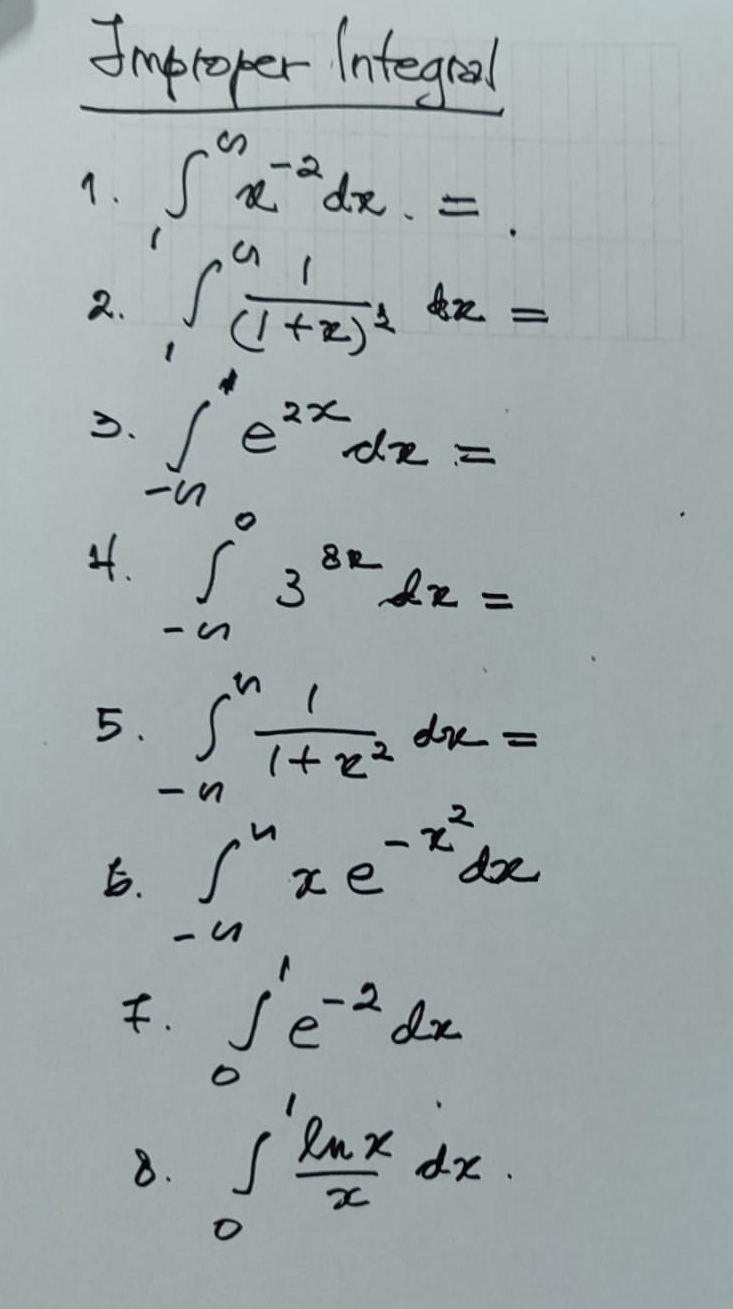 Improper Integral
1. ∫₁^∞ x⁻² dx. =.
2. ∫₁^∞ 1/(1+x)² dx =
3. ∫₋∞ e²ˣ dx =
4. ∫₋∞^0 3⁸ˣ dx =
5. ∫₋∞^∞ 1/(1+x²) dx =
6. ∫₋∞^∞ x e^(-x²) dx
7. ∫₀¹ e⁻² dx
8. ∫₀¹ ln x / x dx.